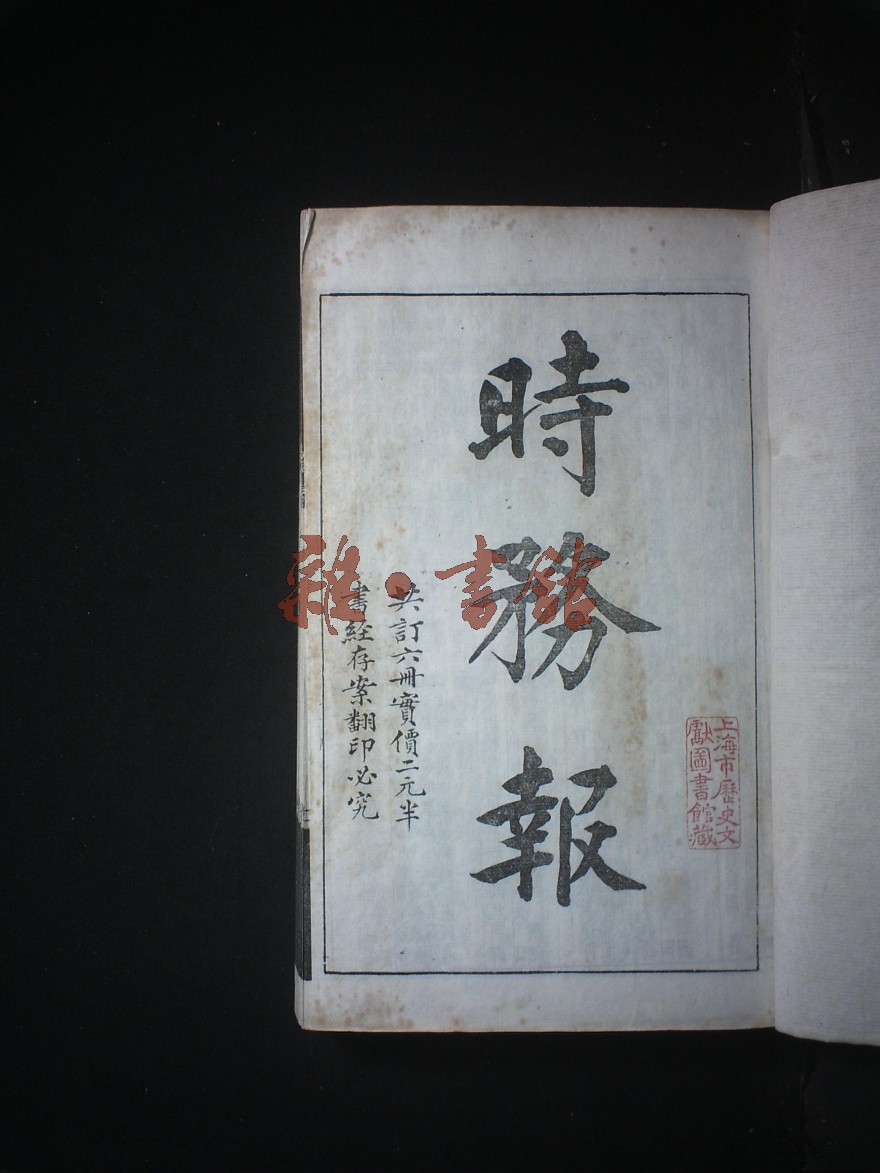 時務報
共訂六冊實價二元半
書經存案翻印必究
上海市歷史文
獻圖書館藏
雜·書館